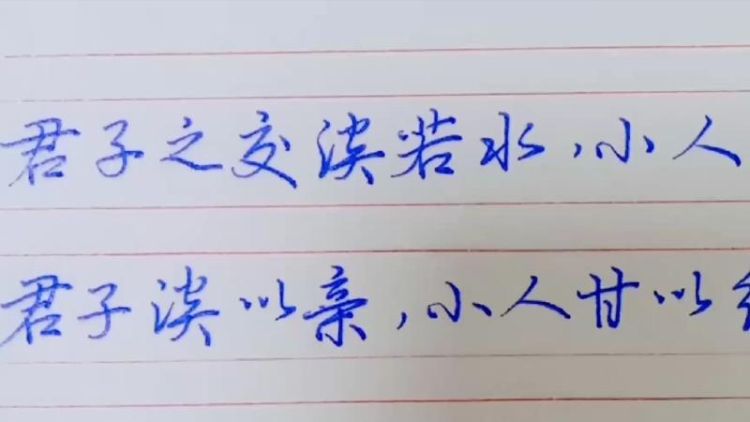 君子之交淡若水,小人
君子淡以亲,小人甘以